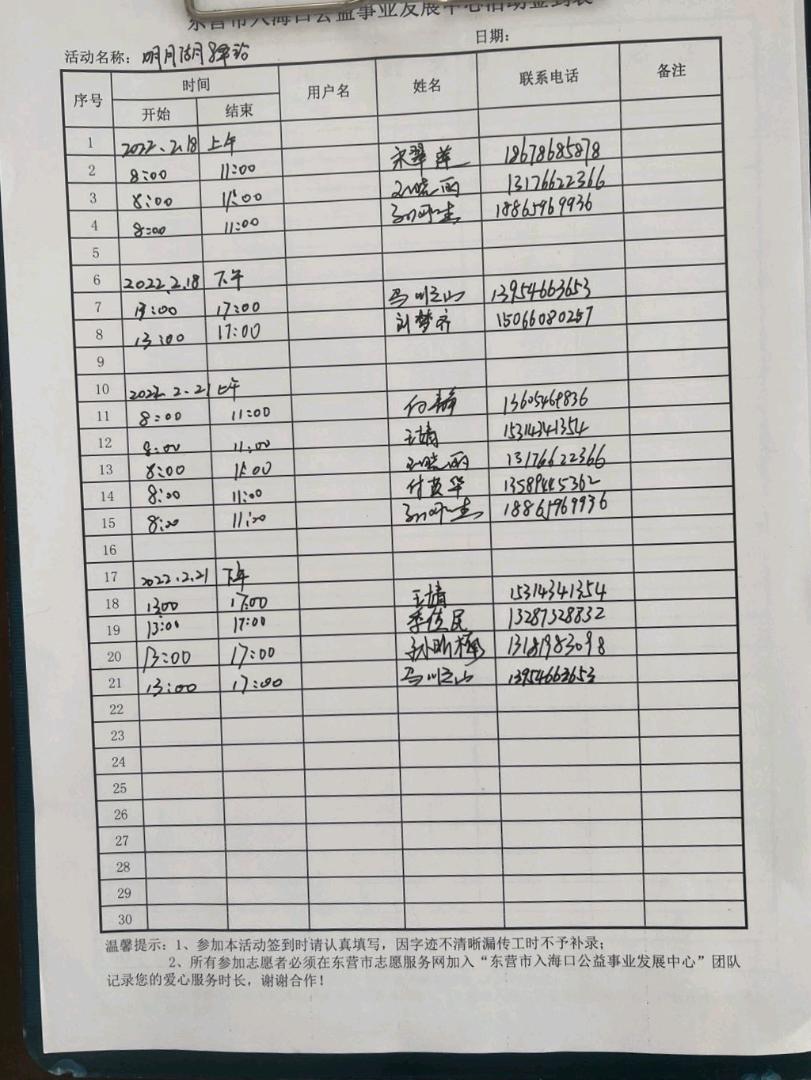 东营市入海口公益事业发展中心活动签到表
活动名称：明月湖驿站 日期：
序号 时间 用户名 姓名 联系电话 备注
开始 结束
1 2022.2.18 上午
2 8:00 11:00 宋翠萍 18678685878
3 8:00 11:00 13176622366
4 8:00 11:00 18865969936
5
6 2022.2.18 下午
7 13:00 17:00 13954663653
8 13:00 17:00 刘梦齐 15066080257
9
10 2022.2.21 上午
11 8:00 11:00 付静 13605469836
12 8:00 11:00 王婧 15314341354
13 8:00 11:00 13176622366
14 8:00 11:00 付黄华 13589445362
15 8:00 11:00 18865969936
16
17 2022.2.21 下午
18 13:00 17:00 王婧 15314341354
19 13:00 17:00 季佳民 13287328832
20 13:00 17:00 13181983098
21 13:00 17:00 13954663653
22
23
24
25
26
27
28
29
30
温馨提示：1、参加本活动签到时请认真填写，因字迹不清晰漏传工时不予补录；
2、所有参加志愿者必须在东营市志愿服务网加入“东营市入海口公益事业发展中心”团队
记录您的爱心服务时长，谢谢合作！